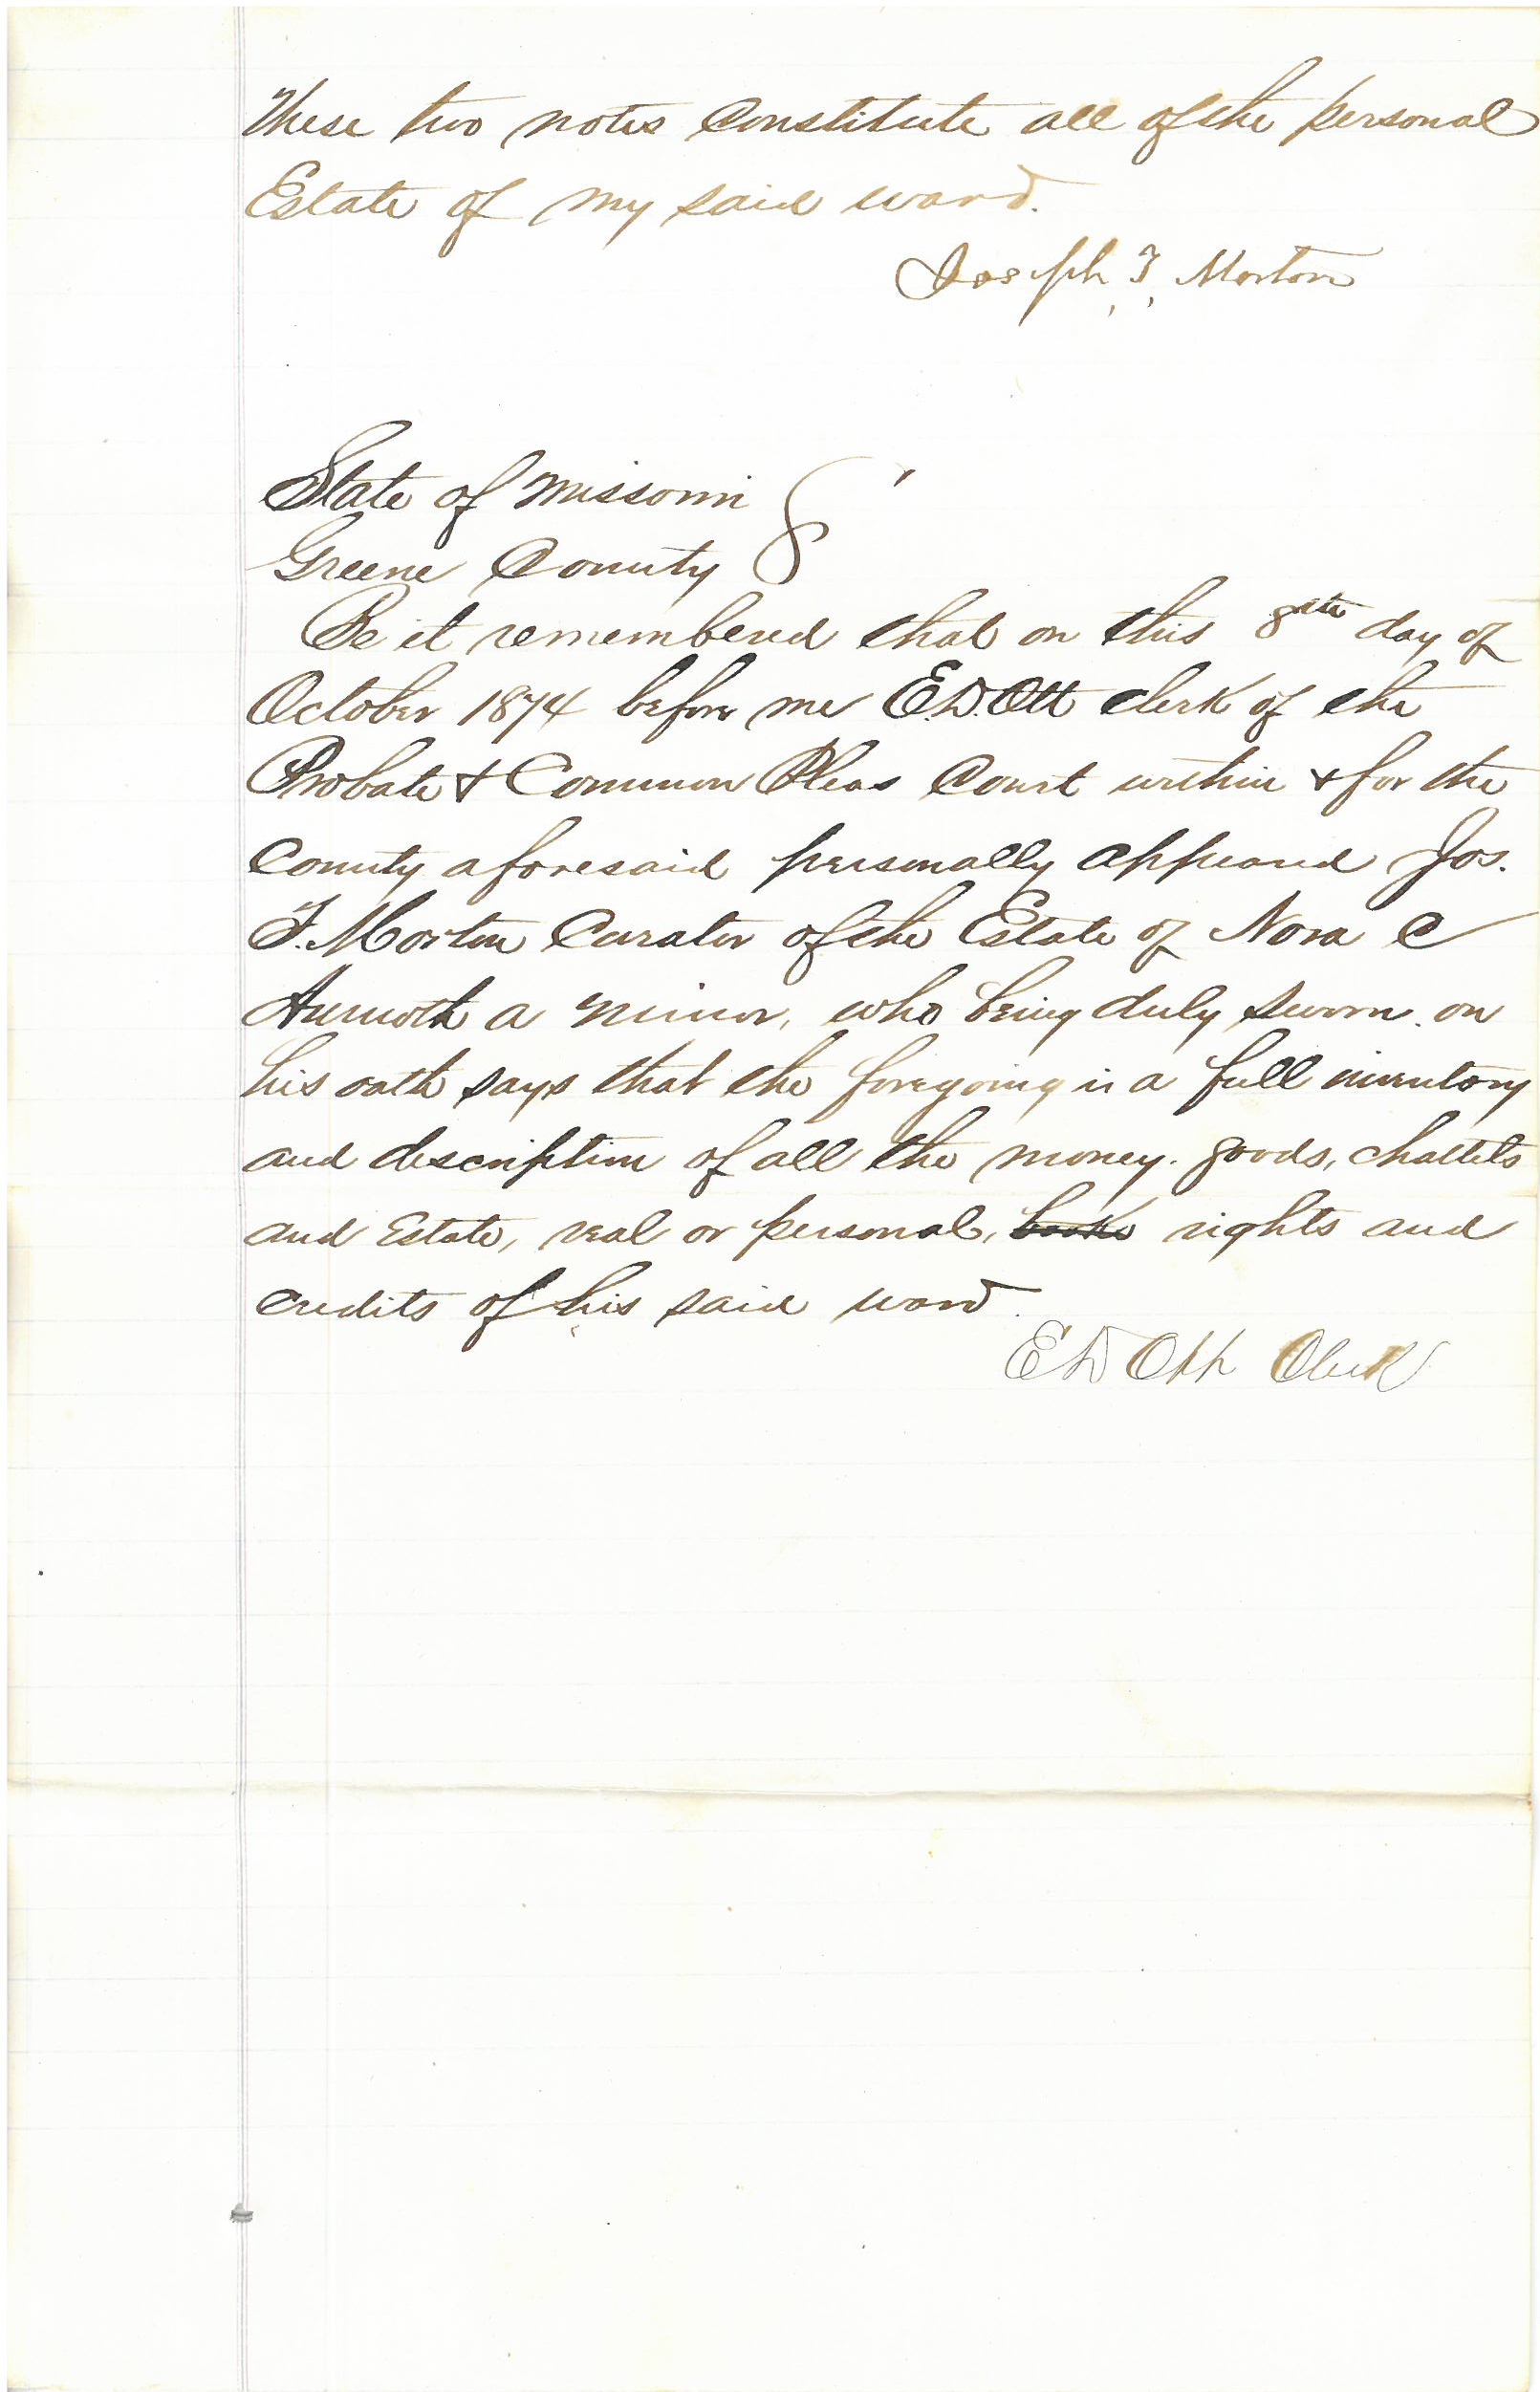 These two notes Constitute all of the personal
Estate of my said ward.
Joseph T. Morton
State of Missouri
Greene County
Be it remembered that on this 8th day of
October 1874 before me E.D. Ott clerk of the
Probate & Common Pleas Court within & for the
County aforesaid personally appeared Jos.
T. Morton Curator of the Estate of Nora C
a minor, who being duly sworn on
his oath says that the foregoing is a full inventory
and description of all the money. goods, chattels
and Estate, real or personal, books rights and
credits of his said ward.
E D Ott Clerk